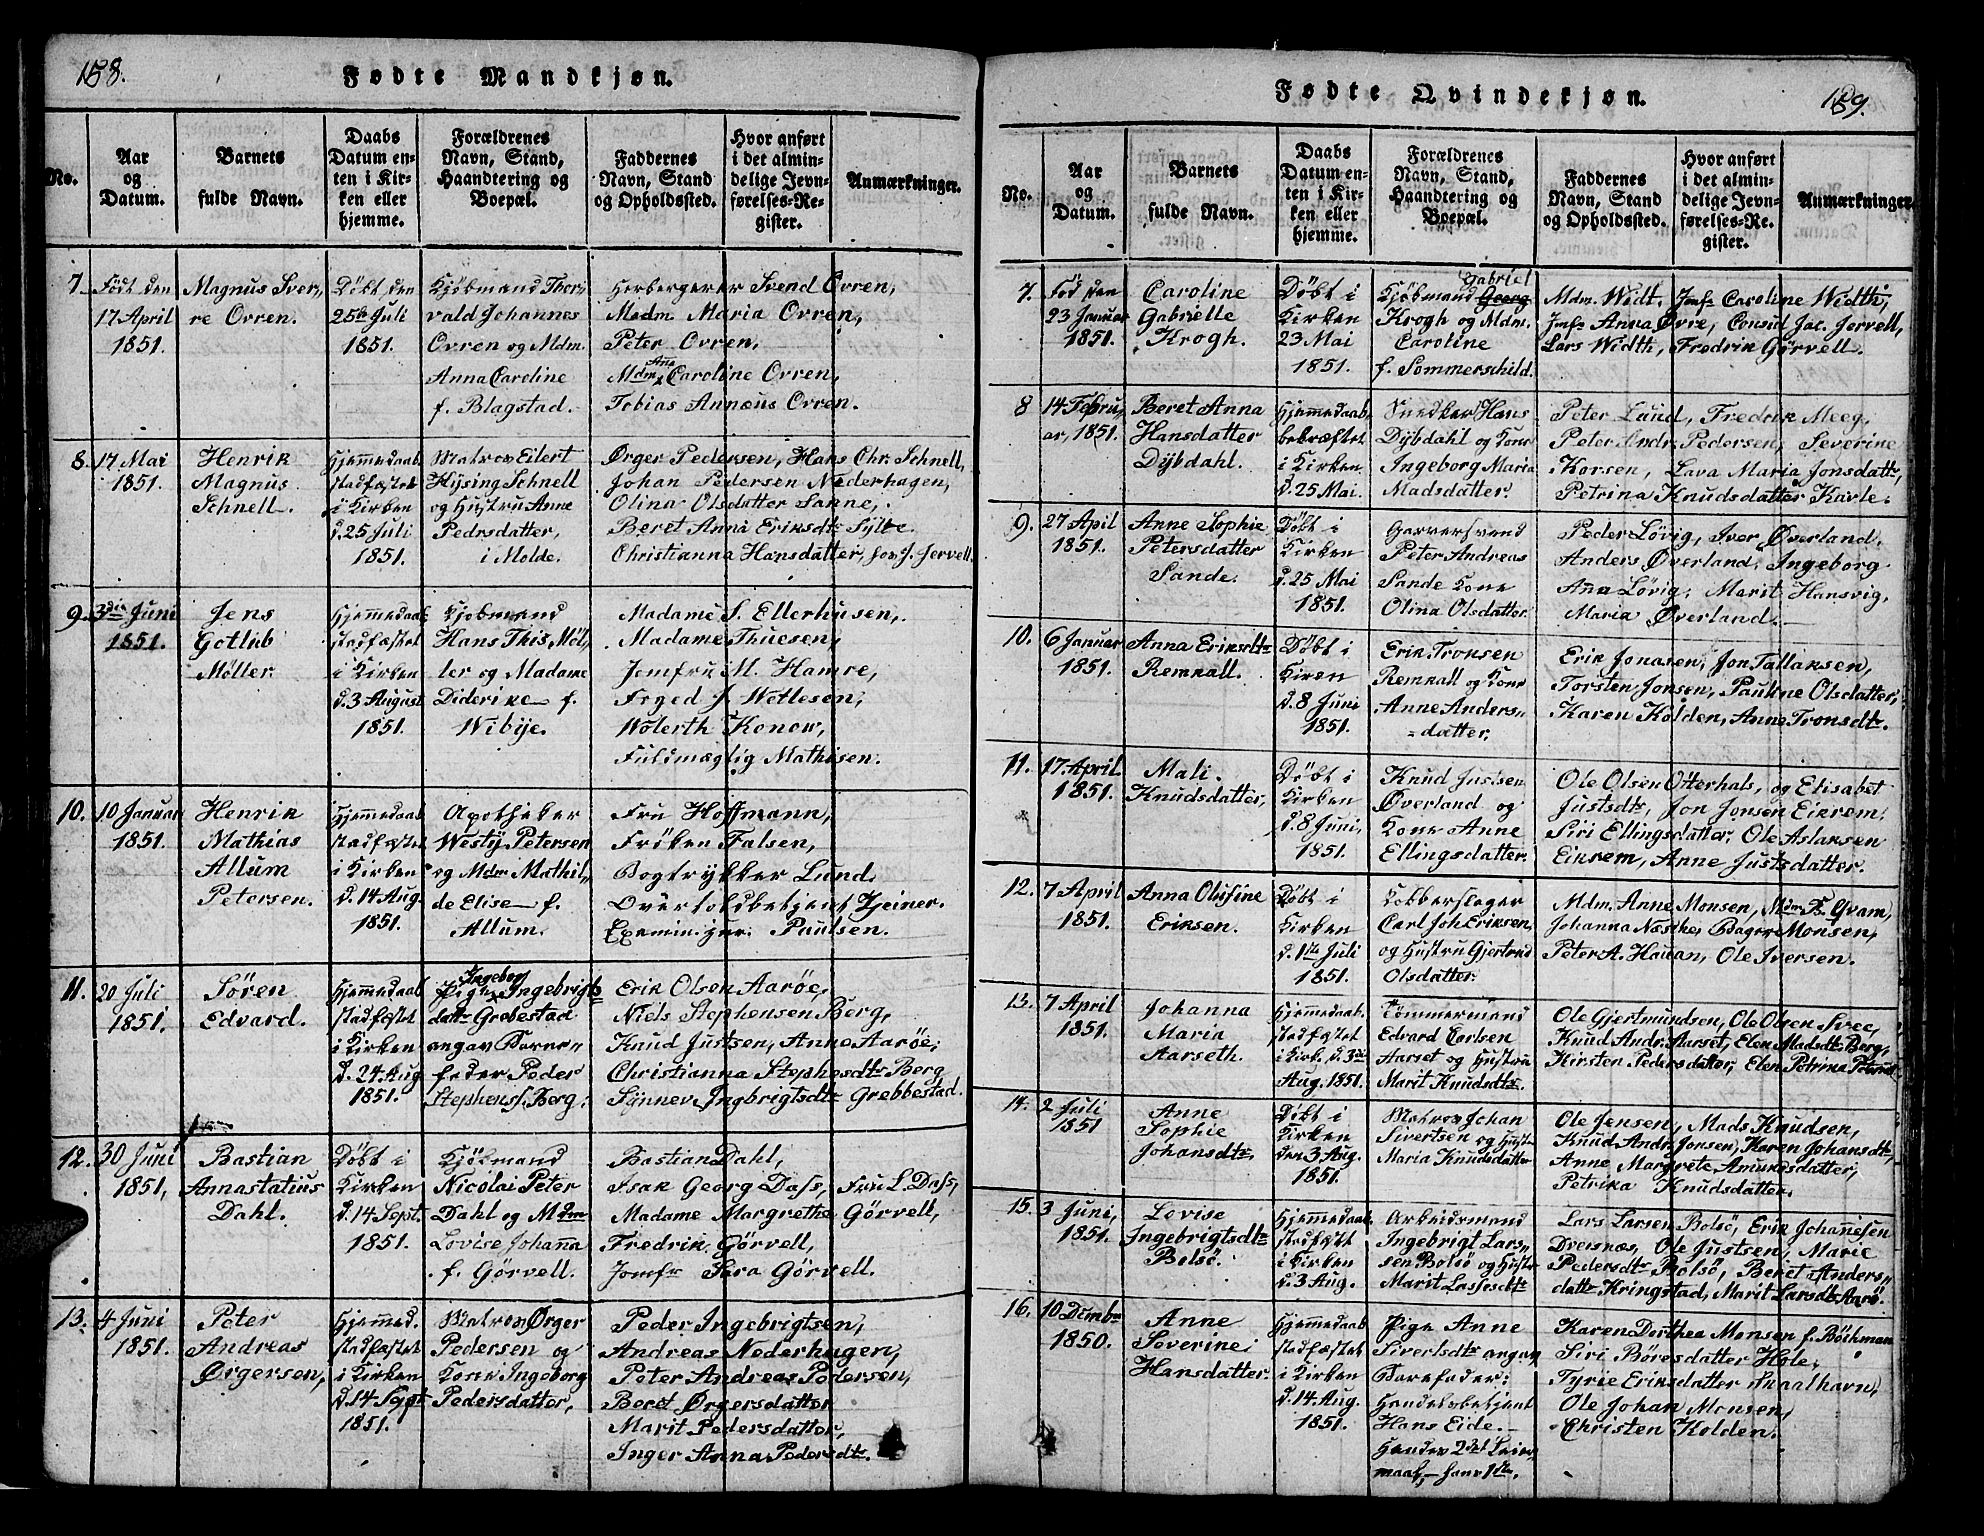 158.
Fødte Mandkjøn.
No.
Aar
og
Datum.
Barnets
fulde Navn.
Daabs
Datum en-
ten i Kir-
ken eller
hjemme.
Forældrenes
Navn, Stand,
Haandtering og
Boepæl.
Faddernes
Navn, Stand
og Opholdssted.
Hvor anført
i det almin-
delige Jevn-
førelses-Re-
gister.
Anmærkninger.
7
Født den
17 April
1851.
Magnus Sver,,
re Ovren.
Døbt den
25de Juli
1851.
Kjøbmand Thor-
vald Johannes
Ovren og Mdm.
Anna Caroline
f. Blagstad.
Herbergerer Svend Ovren,
Mdm Maria Ovren,
Peter Ovren,
Mdm Ane Caroline Ovren,
Tobias Annæus Ovren.
8.
17 Mai
1851.
Henrik
Magnus
Schnell.
Hjemmedaab
stadfæstet
i Kirken
d. 25 Juli
1851.
Matros Eilert
Hysing Schnell
og Hustru Anne
Pedrsdatter,
i Molde.
Ørger Pedersen, Hans Chr. Schnell,
Johan Pedersen Nederhagen,
Olina Olsdatter Sanne,
Beret Anna Eriksdtr Sylte
Christianna Hansdatter, Jom. J. Jervell.
9.
3die Juni
1851.
Jens
Gotlieb
Møller.
Hjemmedaab
stadfæstet
i Kirken
d. 3 August
1851.
Kjøbmand
Hans This Møl,,
ler og Madame
Diderike f.
Wibye.
Madame S. Ellerhusen,
Madame Thuesen,
Jomfru M. Hamre,
Frged J. Wetlesen,
Woterth Konow,
Fuldmægtig Mathisen.
10.
10 Januar
1851.
Henrik
Mathias
Allum
Petersen.
Hjemmedaab
stadfæstet
i Kirken
d. 14 Aug.
1851.
Apotheker
Westy Petersen
og Mdm Mathil,,
de Elise f.
Allum.
Fru Hoffmann,
Frøken Falsen,
Bogtrykker Lund,
Overtoldbetjent Zeiner.
Examin. jur. Paulsen.
11.
20 Juli
1851.
Søren
Edvard.
Hjemmedaab
stadfæstet
i Kirken
d. 24. Aug
1851.
Ingeborg
Pige Ingebrigts
datter Grebestad
angav Barne,,
fader Peder
Stephens. Berg.
Erik Olsen Aarøe,
Niels Stephensen Berg,
Knud Justsen, Anne Aarøe,
Christianna Stephesdtr Berg
Synnev Ingbrigtsdtr Grebbestad.
12.
30 Juni
1851,
Bastian
Annastatius
Dahl.
Døbt i
Kirken
d. 14 Sept.
1851.
Kjøbmand
Nicolai Peter
Dahl og Mdm
Lovise Johanna
f. Gørvell.
Bastian Dahl,
Isak Georg Dass, Fru L. Dass,
Madame Margrethe Gørvell,
Fredrik Gørvell,
Jomfr Sara Gørvell.
13.
4 Juni
1851.
Peter
Andreas
Ørgersen,
Hjemmed.
stadfæstet
i Kirken
d. 14 Sept
1851.
Matros Ørger
Pedersen og
Kone Ingeborg
Pedersdatter,
Peder Ingebrigtsen,
Andreas Nederhagen,
Peter Andreas Pedersen,
Beret Ørgersdatter
Marit Pedersdatter,
Inger Anna Pedersdtr.
Fødte Qvindekjøn.
159.
No.
Aar
og
Datum.
Barnets
fulde Navn.
Daabs
Datum en-
ten i Kir-
ken eller
hjemme.
Forældrenes
Navn, Stand,
Haandtering og
Boepæl.
Faddernes
Navn, Stand
og Opholdssted.
Hvor anført
i det almin-
delige Jevn-
førelses-Re-
gister.
Anmærkninger.
7.
Fød den
23 Januar
1851.
Caroline
Gabrielle
Krogh.
Døbt i
Kirken
23 Mai
1851.
Gabriel
Kjøbmand Georg
Krogh og Mdm.
Caroline
f. Sommerschild.
Mdm. Widt, Jmfr Caroline Width,
Jmfr Anna Øvre, Consul Jac. Jervell,
Lars Width, Fredrik Gørvell.
8
14 Febru,,
ar, 1851.
Beret Anna
Hansdatter
Dybdahl.
Hjemmedaab
bekræftet
i Kirken
d. 25 Mai.
Snedker Hans
Dybdahl og Kone
Ingeborg Maria
Madsdatter.
Peter Lund, Fredrik Meeg,
Peter Andr. Pedersen, Severine
Korsen, Lava Maria Jonsdatr,
Petrina Knudsdatter Kavle.
9.
27 April
1851.
Anne Sophie
Petersdatter
Sande.
Døbt i
Kirken
d. 25 Mai
1851.
Garversvend
Peter Andreas
Sande Kone
Olina Olsdatter.
Peder Løvig, Iver Øverland.
Anders Øverland, Ingeborg
Anna Løvig, Marit Hansvig,
Maria Øverland.
10.
6 Januar
1851.
Anna Eriksdtr
Remnall.
Døbt i
Kirken
d. 8 Juni
1851.
Erik Tronsen
Remnall og Kone
Anne Anders,,
datter,
Erik Jonasen, Jon Tallaksen,
Torsten Jonsen, Pauline Olsdatter,
Karen Kolden, Anne Tronsdtr.
11.
17. April
1851.
Mali
Knudsdatter,
Døbt i
Kirken
d. 8 Juni,
1851.
Knud Justsen
Øverland og
Kone Anne
Ellingsdatter.
Ole Olsen Otterhals, og Elisabet
Justsdtr, Jon Jonsen Eikrem,
Siri Ellingsdatter, Ole Aslaksen
Eikrem, Anne Justsdatter.
12.
7 April
1851.
Anna Olufine
Eriksen.
Døbt i
Kirken
d. 1ste Juli
1851.
Kobberslager
Carl Joh Eriksen,
og Hustru Gjertrud
Olsdatter.
Mdm. Anne Monsen, Mdm. K. Qvam,
Johanna Næsche, Bager Monsen,
Peter A. Hauan, Ole Iversen.
13.
7 April
1851.
Johanna
Maria
Aarseth.
Hjemmedaab
stadfæstet
i Kirk. d. 3de
Aug. 1851.
Tømmermand
Edvard Carlsen
Aarset og Hustru
Marit Knudsdtr.
Ole Gjertmundsen, Ole Olsen Svee,
Knud Andr. Aarset, Elen Madsdtr Berg,
Kirsten Pedersdatter, Elen Petrika
14.
2 Juli
1851
Anne
Sophie
Johansdtr
Døbt i
Kirken
den 3 Aug.
1851.
Matros Johan
Sivertsen og Hustr
Maria Knudsdatter
Ole Jensen, Mads Knudsen,
Knud Andr. Jonsen, Karen Johansdtr,
Anne Margrete Amundsdatter,
Petrika Knudsdatter.
15.
3 Juni,
1851.
Lovise
Ingebrigtsdtr
Bolsø.
Hjemmedaab
stadfæst
i Kirken
d. 3 Aug.
Arbeidsmand
Ingebrigt Lars,,
sen Bolsø og Hustr
Marit Lassesdtr
Lars Larsen Bolsø, Erik Johanesen
Dversnæs, Ole Justsen, Marie
Pedersdtr Bolsø, Beret Anders,,
datter Kringstad, Marit Larsdtr Aarø.
16.
10 Decmbr
1850.
Anne
Severine
Hansdatter
Hjemmedaab
stadfæstet
i Kirken
d. 14. Aug.
1851.
Pige Anne
Sivertsdtr angav
Barnefader:
Handelsbetjent
Hans Eide.
Hendes 2det Leier
maal, – hans 1ste.
Karen Dorthea Monsen f. Bøchman
Siri Børesdatter Hole,
Tyrie Eriksdatter Smaalhavn,
Ole Johan Monsen,
Christen Kolden.